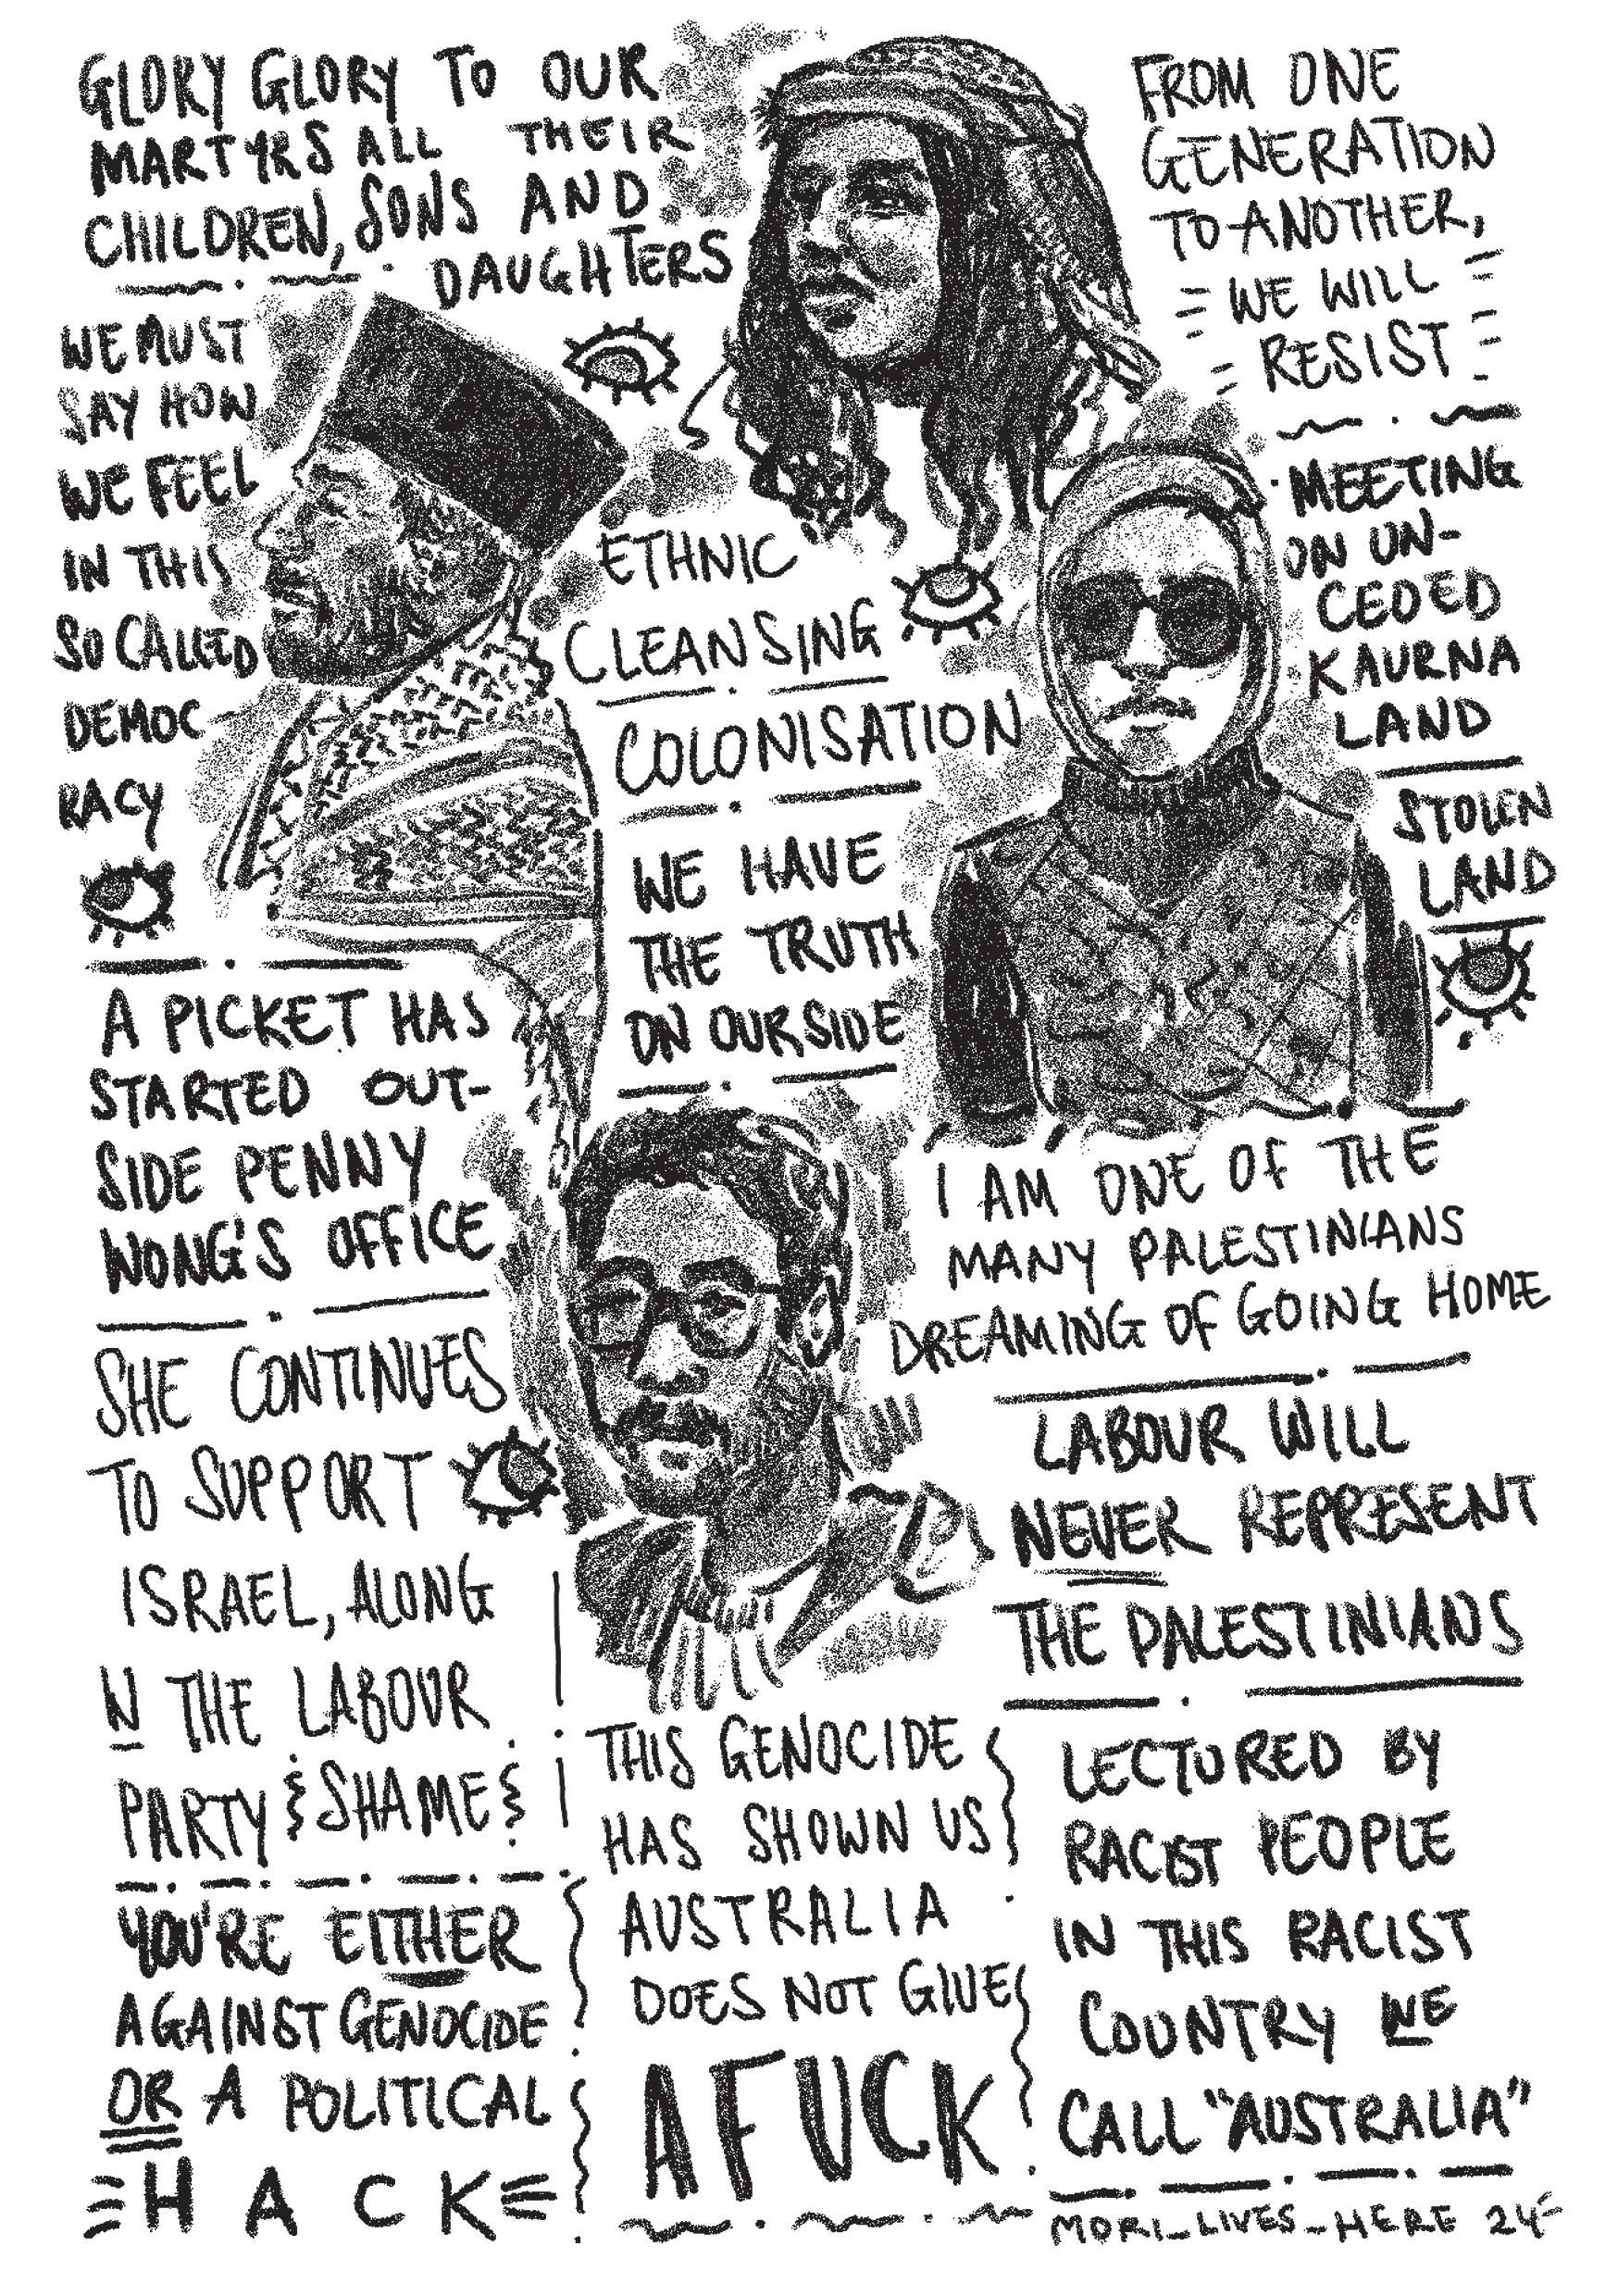 GLORY GLORY TO OUR
MARTYRS ALL THEIR
CHILDREN, SONS AND
DAUGHTERS
WE MUST
SAY HOW
WE FEEL
IN THIS
SO CALLED
DEMOC-
RACY
A PICKET HAS
STARTED OUT-
SIDE PENNY
WONG'S OFFICE
SHE CONTINUES
TO SUPPORT
ISRAEL, ALONG
W THE LABOUR
PARTY SHAME
YOU'RE EITHER
AGAINST GENOCIDE
OR A POLITICAL
HACK
ETHNIC
CLEANSING
COLONISATION
WE HAVE
THE TRUTH
ON OUR SIDE
THIS GENOCIDE
HAS SHOWN US
AUSTRALIA
DOES NOT GIVE
A FUCK
FROM ONE
GENERATION
TO ANOTHER,
WE WILL
RESIST
MEETING
ON UN-
CEDED
KAURNA
LAND
STOLEN
LAND
I AM ONE OF THE
MANY PALESTINIANS
DREAMING OF GOING HOME
LABOUR WILL
NEVER REPRESENT
THE PALESTINIANS
LECTURED BY
RACIST PEOPLE
IN THIS RACIST
COUNTRY WE
CALL "AUSTRALIA"
MORI_LIVES_HERE 24